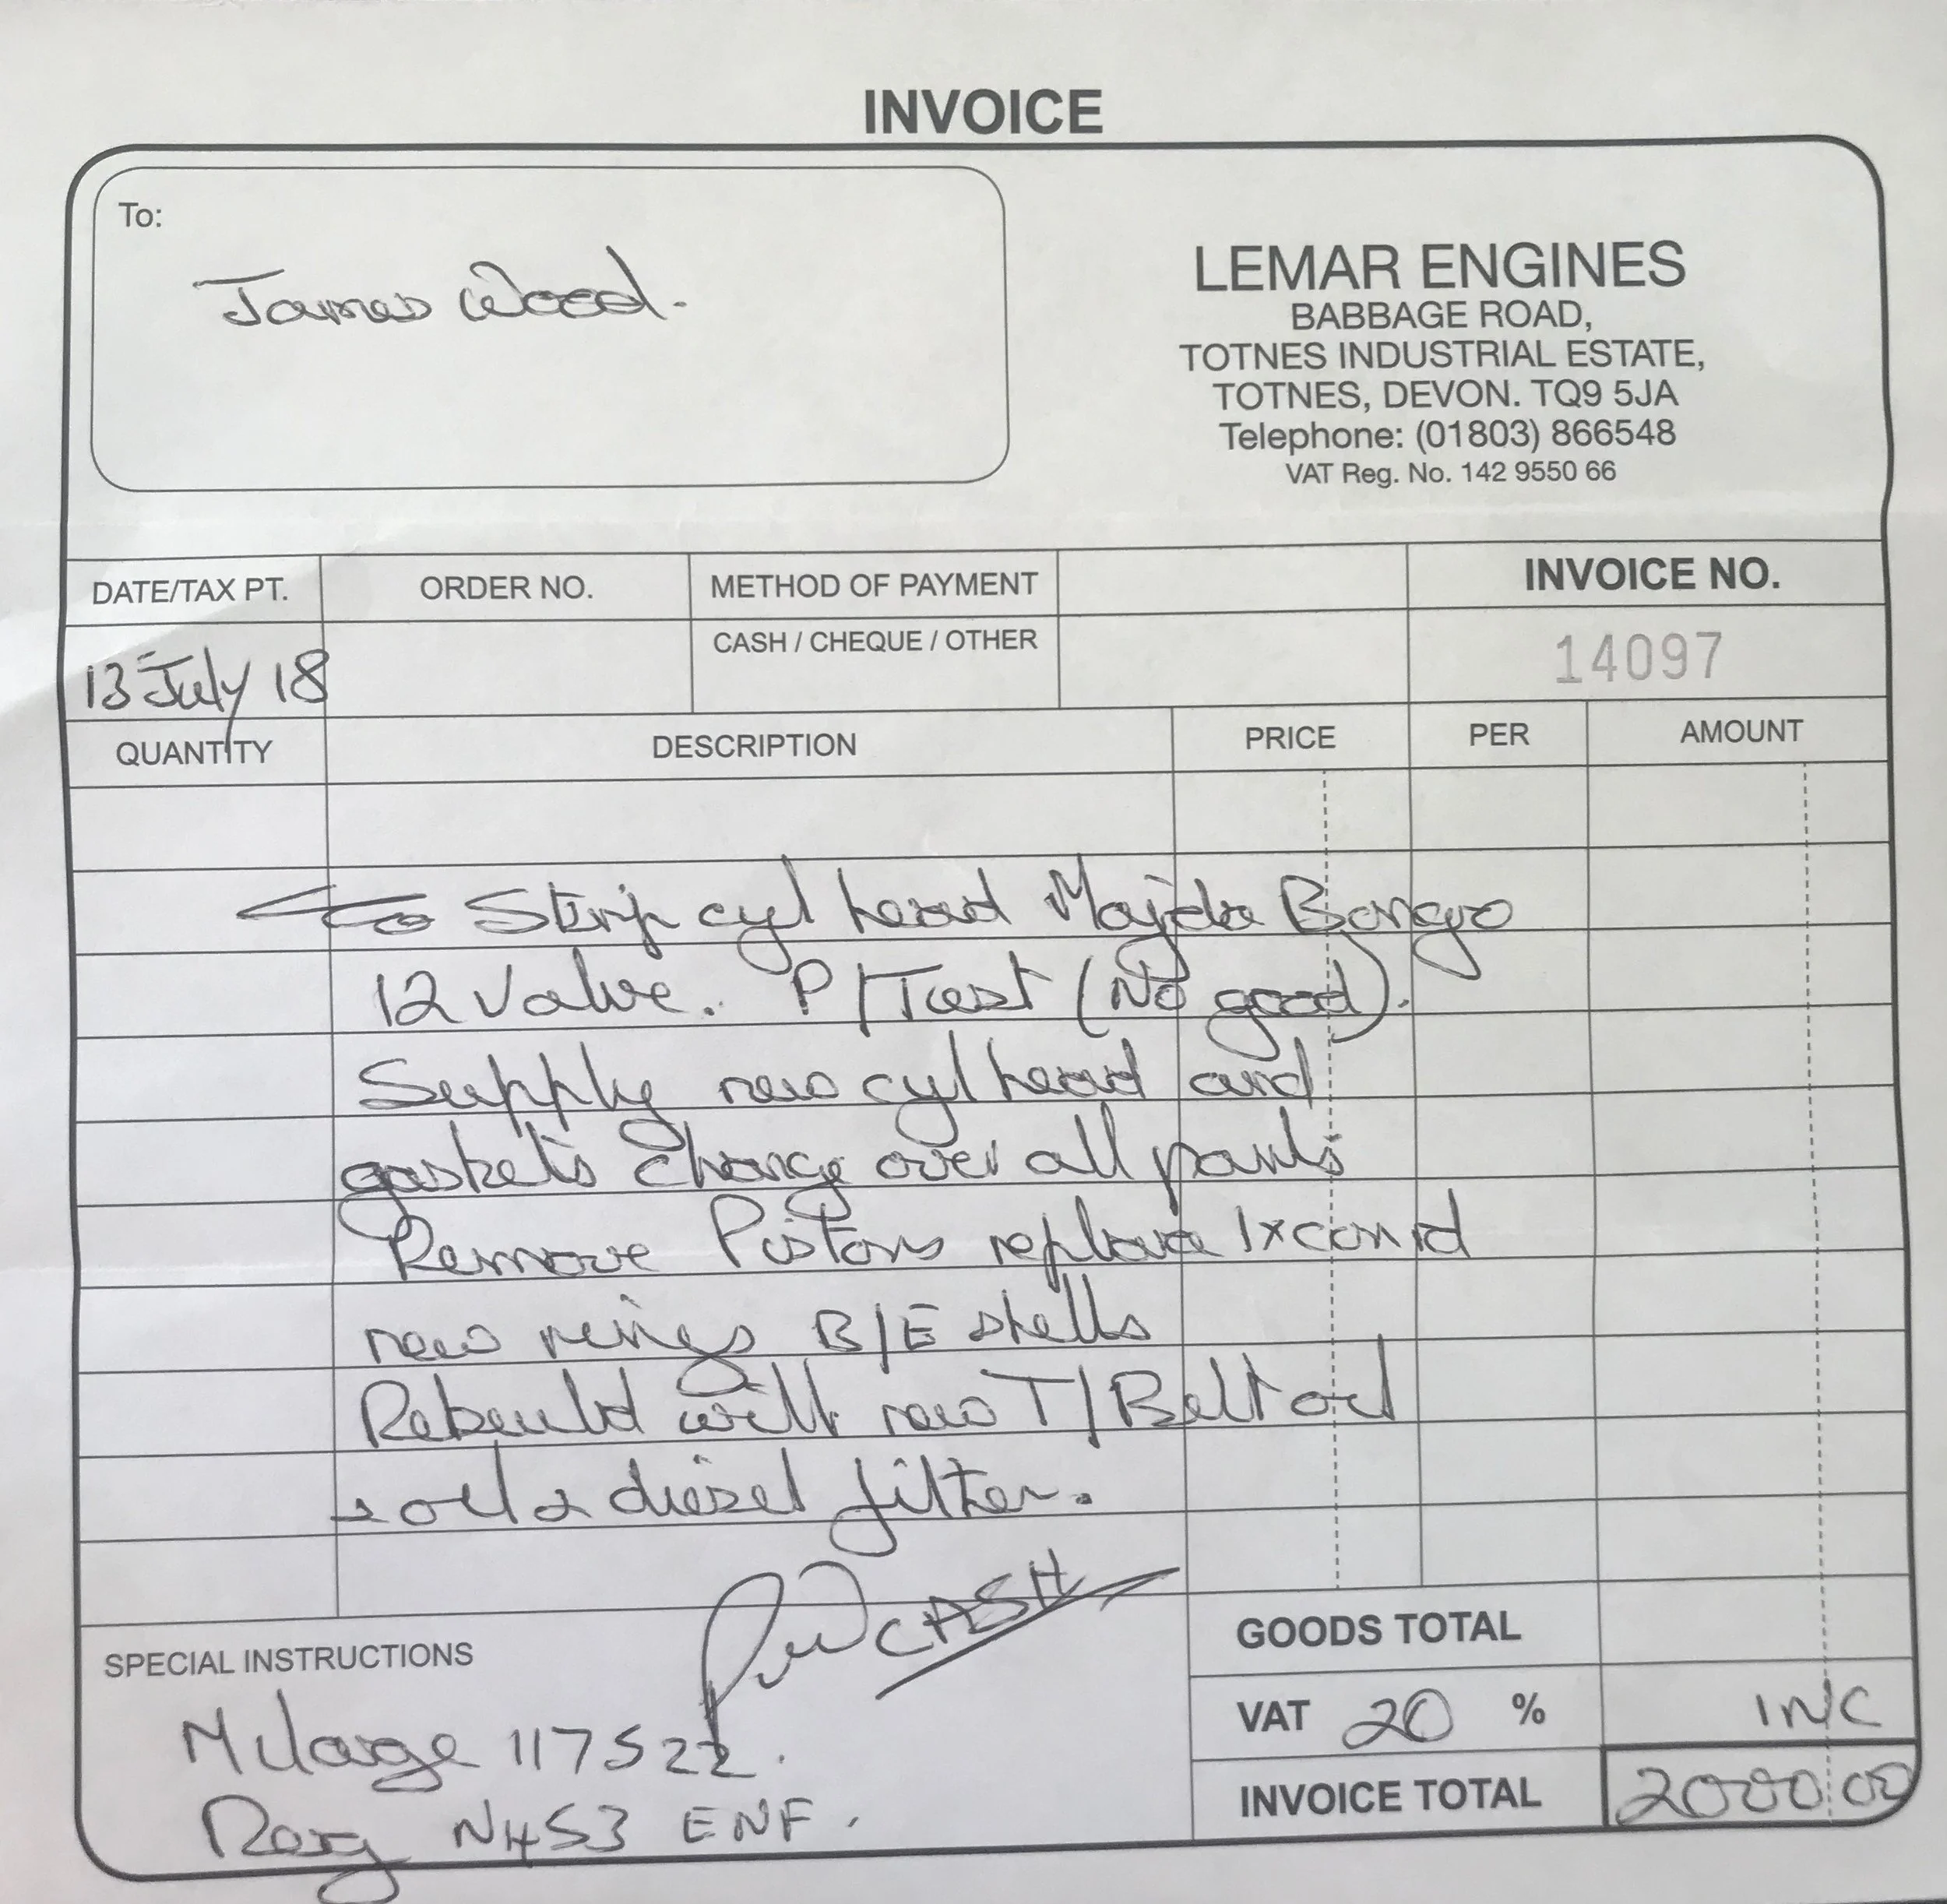 INVOICE
To:
James Wood.
LEMAR ENGINES
BABBAGE ROAD,
TOTNES INDUSTRIAL ESTATE,
TOTNES, DEVON. TQ9 5JA
Telephone: (01803) 866548
VAT Reg. No. 142 9550 66
DATE/TAX PT. ORDER NO. METHOD OF PAYMENT INVOICE NO.
13 July 18 CASH / CHEQUE / OTHER 14097
QUANTITY DESCRIPTION PRICE PER AMOUNT
To Strip cyl head Mazda Bongo
12 Valve. P/Test (No good).
Supply new cyl head and
gaskets change over all parts
Remove Pistons replace 1x con rd
new rings B/E shells
Rebuild with new T/Belt oil
+ oil & diesel filter.
CASH
SPECIAL INSTRUCTIONS
Milage 117522.
Reg N453 ENF.
GOODS TOTAL
VAT 20 % INC
INVOICE TOTAL 2000.00